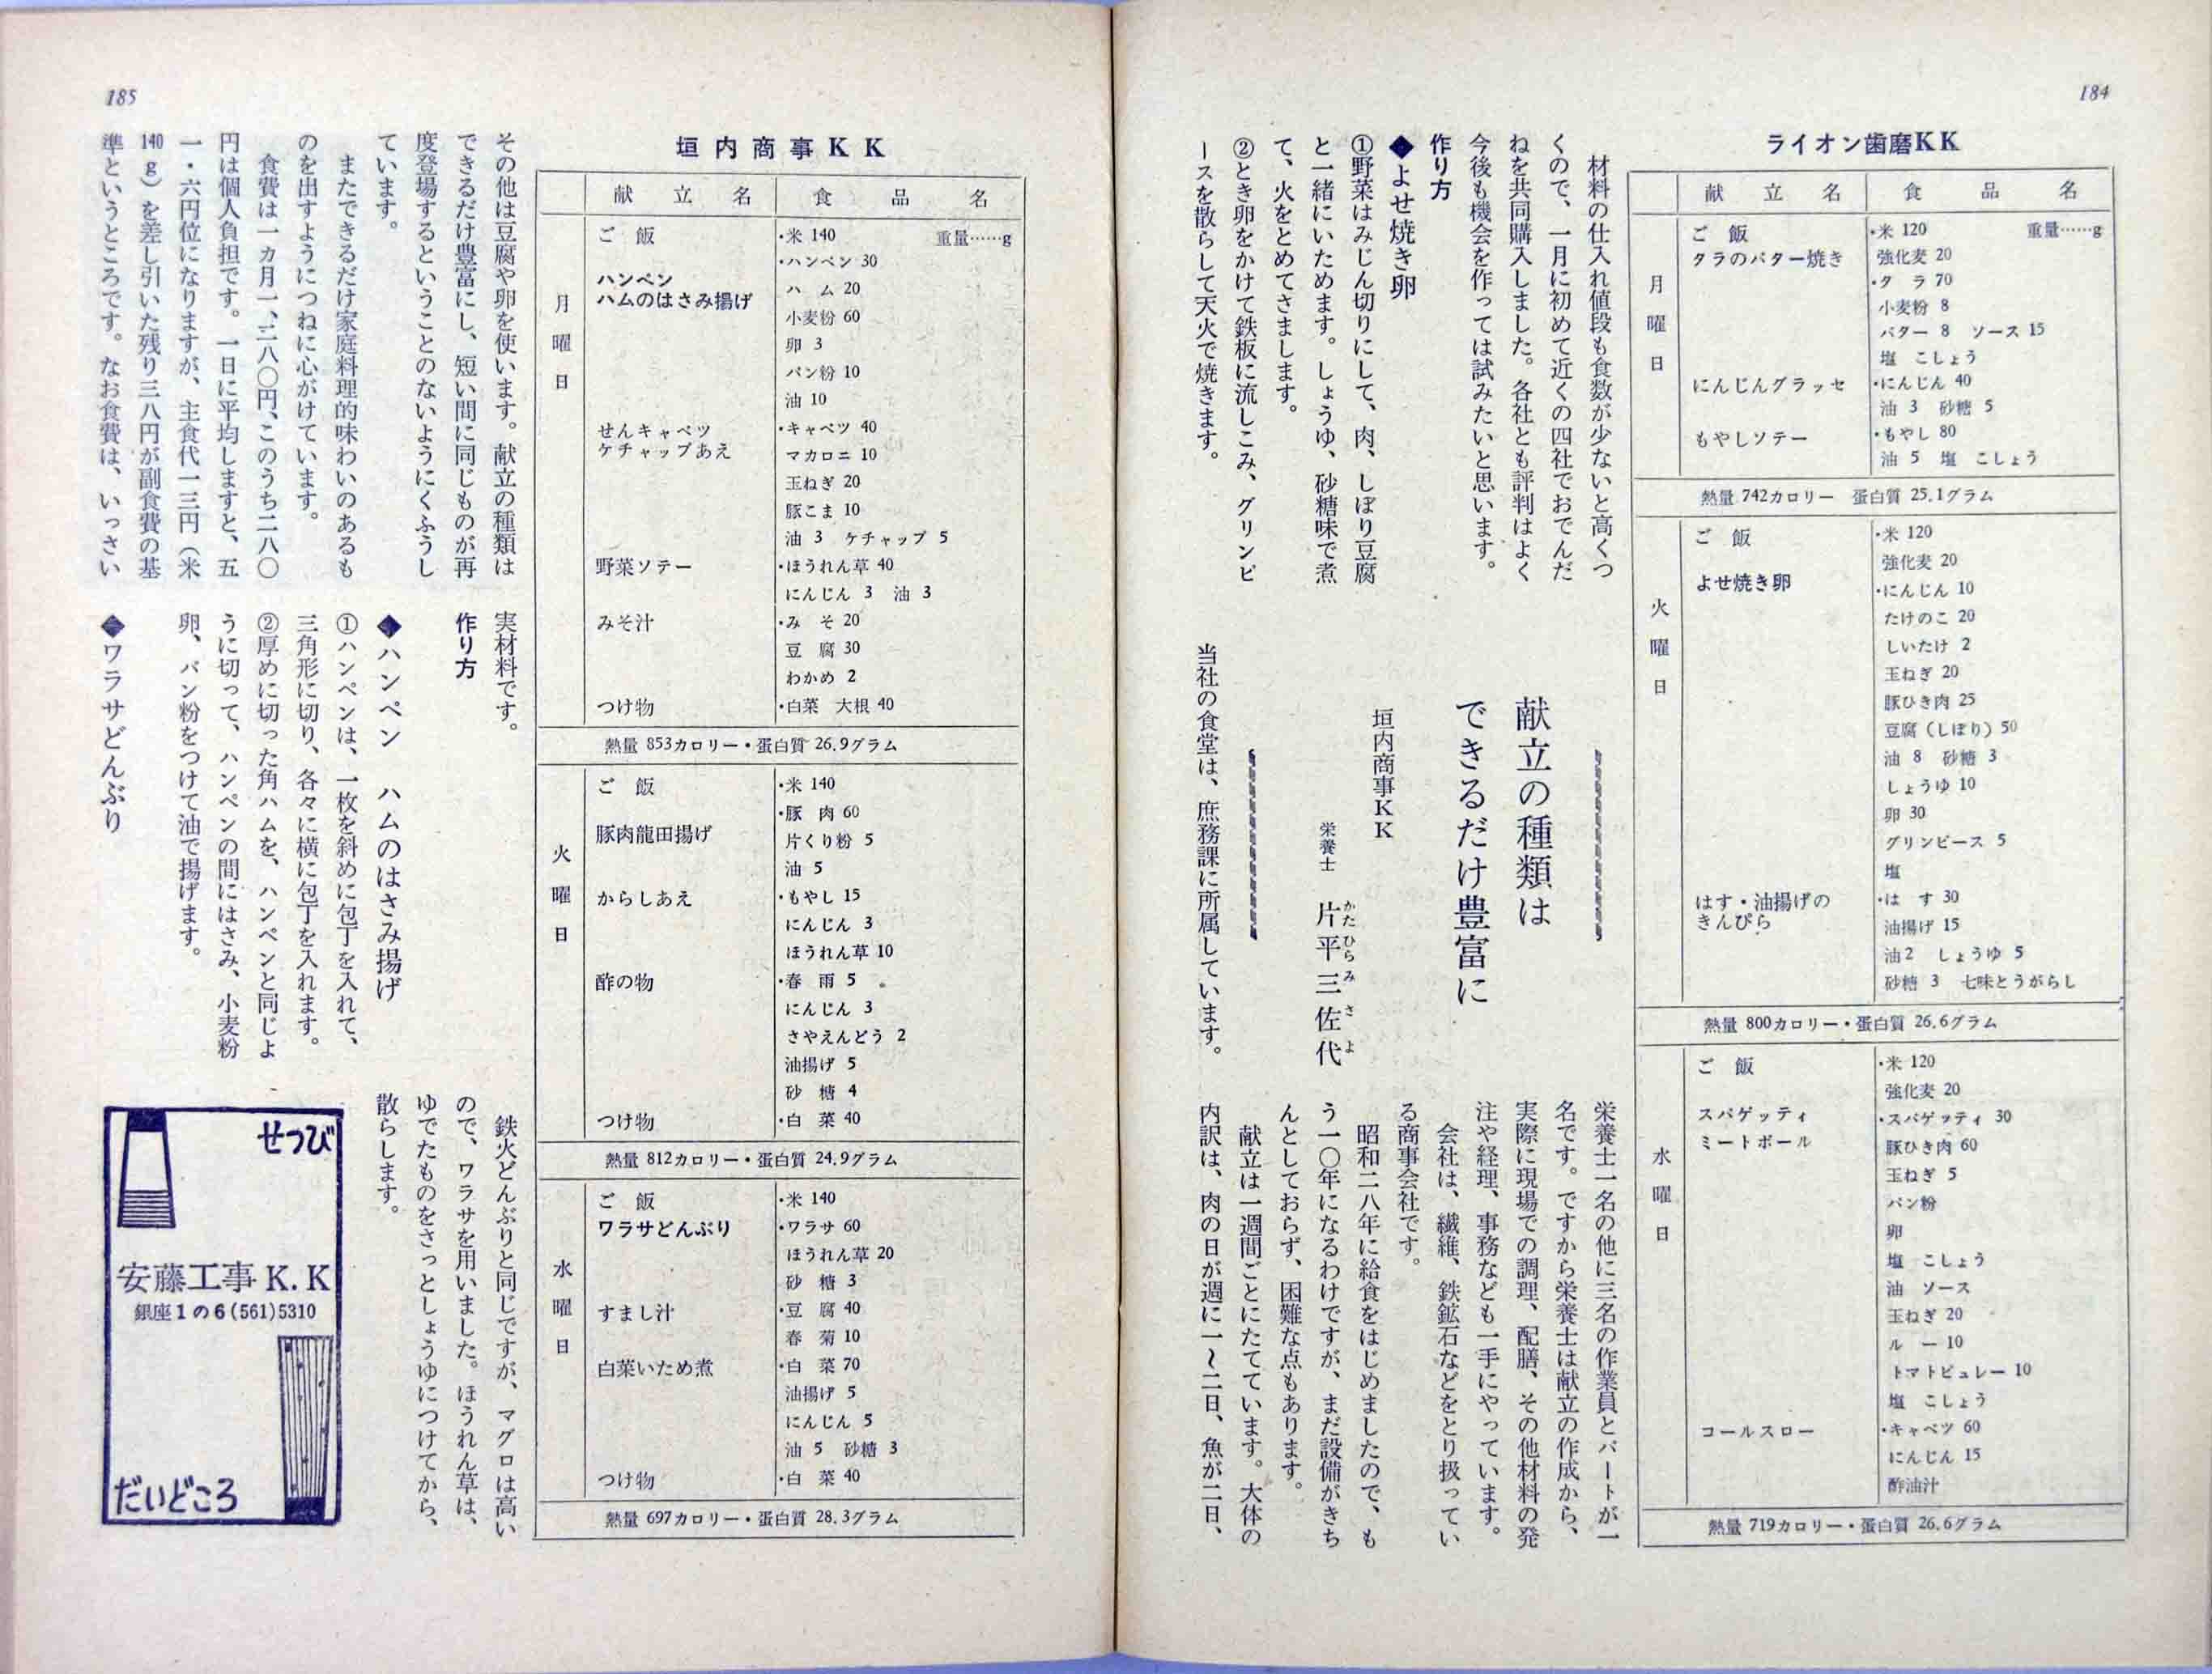 184
ライオン歯磨KK
献立名 食品名
月曜日
ご飯 ・米 120 重量……g
タラのバター焼き 強化麦 20
・タラ 70
小麦粉 8
バター 8 ソース 15
塩 こしょう
にんじんグラッセ ・にんじん 40
油 3 砂糖 5
もやしソテー ・もやし 80
油 5 塩 こしょう
熱量 742カロリー 蛋白質 25.1グラム
火曜日
ご飯 ・米 120
強化麦 20
よせ焼き卵 ・にんじん 10
たけのこ 20
しいたけ 2
玉ねぎ 20
豚ひき肉 25
豆腐（しぼり）50
油 8 砂糖 3
しょうゆ 10
卵 30
グリンピース 5
塩
はす・油揚げの ・はす 30
きんぴら 油揚げ 15
油2 しょうゆ 5
砂糖 3 七味とうがらし
熱量 800カロリー・蛋白質 26.6グラム
水曜日
ご飯 ・米 120
強化麦 20
スパゲッティ ・スパゲッティ 30
ミートボール 豚ひき肉 60
玉ねぎ 5
パン粉
卵
塩 こしょう
油 ソース
玉ねぎ 20
ルー 10
トマトピュレー 10
塩 こしょう
コールスロー ・キャベツ 60
にんじん 15
酢油汁
熱量 719カロリー・蛋白質 26.6グラム
材料の仕入れ値段も食数が少ないと高くつ
くので、一月に初めて近くの四社でおでんだ
ねを共同購入しました。各社とも評判はよく
今後も機会を作っては試みたいと思います。
作り方
◆よせ焼き卵
①野菜はみじん切りにして、肉、しぼり豆腐
と一緒にいためます。しょうゆ、砂糖味で煮
て、火をとめてさまします。
②とき卵をかけて鉄板に流しこみ、グリンピ
ースを散らして天火で焼きます。
献立の種類は
できるだけ豊富に
垣内商事KK
栄養士 片平三佐代
かたひらみさよ
当社の食堂は、庶務課に所属しています。
栄養士一名の他に三名の作業員とパートが一
名です。ですから栄養士は献立の作成から、
実際に現場での調理、配膳、その他材料の発
注や経理、事務なども一手にやっています。
会社は、繊維、鉄鉱石などをとり扱ってい
る商事会社です。
昭和二八年に給食をはじめましたので、も
う一〇年になるわけですが、まだ設備がきち
んとしておらず、困難な点もあります。
献立は一週間ごとにたてています。大体の
内訳は、肉の日が週に一〜二日、魚が二日、
185
垣内商事KK
献立名 食品名
月曜日
ご飯 ・米 140 重量……g
ハンペン ・ハンペン 30
ハムのはさみ揚げ ハム 20
小麦粉 60
卵 3
パン粉 10
油 10
せんキャベツ ・キャベツ 40
ケチャップあえ マカロニ 10
玉ねぎ 20
豚こま 10
油 3 ケチャップ 5
野菜ソテー ・ほうれん草 40
にんじん 3 油 3
みそ汁 ・みそ 20
豆腐 30
わかめ 2
つけ物 ・白菜 大根 40
熱量 853カロリー・蛋白質 26.9グラム
火曜日
ご飯 ・米 140
・豚肉 60
豚肉龍田揚げ 片くり粉 5
油 5
からしあえ ・もやし 15
にんじん 3
ほうれん草 10
酢の物 ・春雨 5
にんじん 3
さやえんどう 2
油揚げ 5
砂糖 4
つけ物 ・白菜 40
熱量 812カロリー・蛋白質 24.9グラム
水曜日
ご飯 ・米 140
ワラサどんぶり ・ワラサ 60
ほうれん草 20
砂糖 3
すまし汁 ・豆腐 40
春菊 10
白菜いため煮 ・白菜 70
油揚げ 5
にんじん 5
油 5 砂糖 3
つけ物 ・白菜 40
熱量 697カロリー・蛋白質 28.3グラム
その他は豆腐や卵を使います。献立の種類は
できるだけ豊富にし、短い間に同じものが再
度登場するということのないようにくふうし
ています。
またできるだけ家庭料理的味わいのあるも
のを出すようにつねに心がけています。
食費は一カ月一、二八〇円、このうち二八〇
円は個人負担です。一日に平均しますと、五
一・六円位になりますが、主食代一三円（米
140g）を差し引いた残り三八円が副食費の基
準というところです。なお食費は、いっさい
実材料です。
作り方
◆ハンペン ハムのはさみ揚げ
①ハンペンは、一枚を斜めに包丁を入れて、
三角形に切り、各々に横に包丁を入れます。
②厚めに切った角ハムを、ハンペンと同じよ
うに切って、ハンペンの間にはさみ、小麦粉
卵、パン粉をつけて油で揚げます。
◆ワラサどんぶり
鉄火どんぶりと同じですが、マグロは高い
ので、ワラサを用いました。ほうれん草は、
ゆでたものをさっとしょうゆにつけてから、
散らします。
せつび
安藤工事K.K
銀座1の6(561)5310
だいどころ